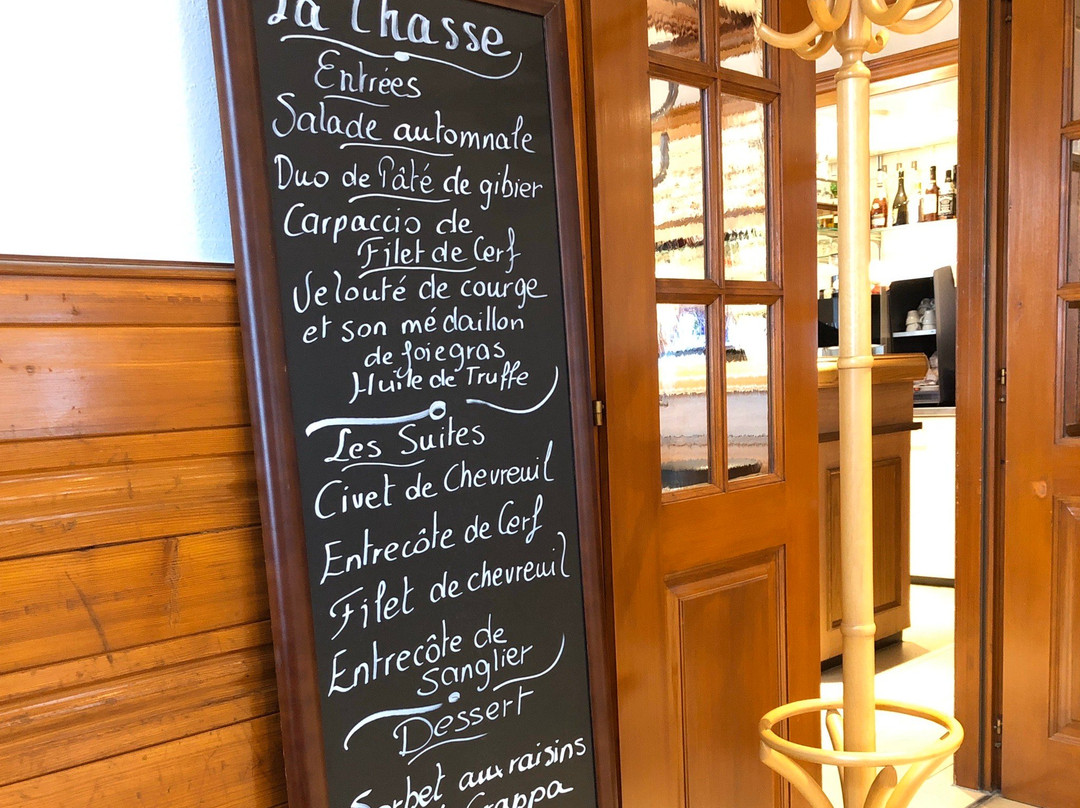 La Chasse
Entrées
Salade automnale
Duo de Pâté de gibier
Carpaccio de
Filet de Cerf
Velouté de courge
et son médaillon
de foie gras
Huile de Truffe
Les Suites
Civet de Chevreuil
Entrecôte de Cerf
Filet de chevreuil
Entrecôte de
Sanglier
Dessert
Sorbet aux raisins
Grappa